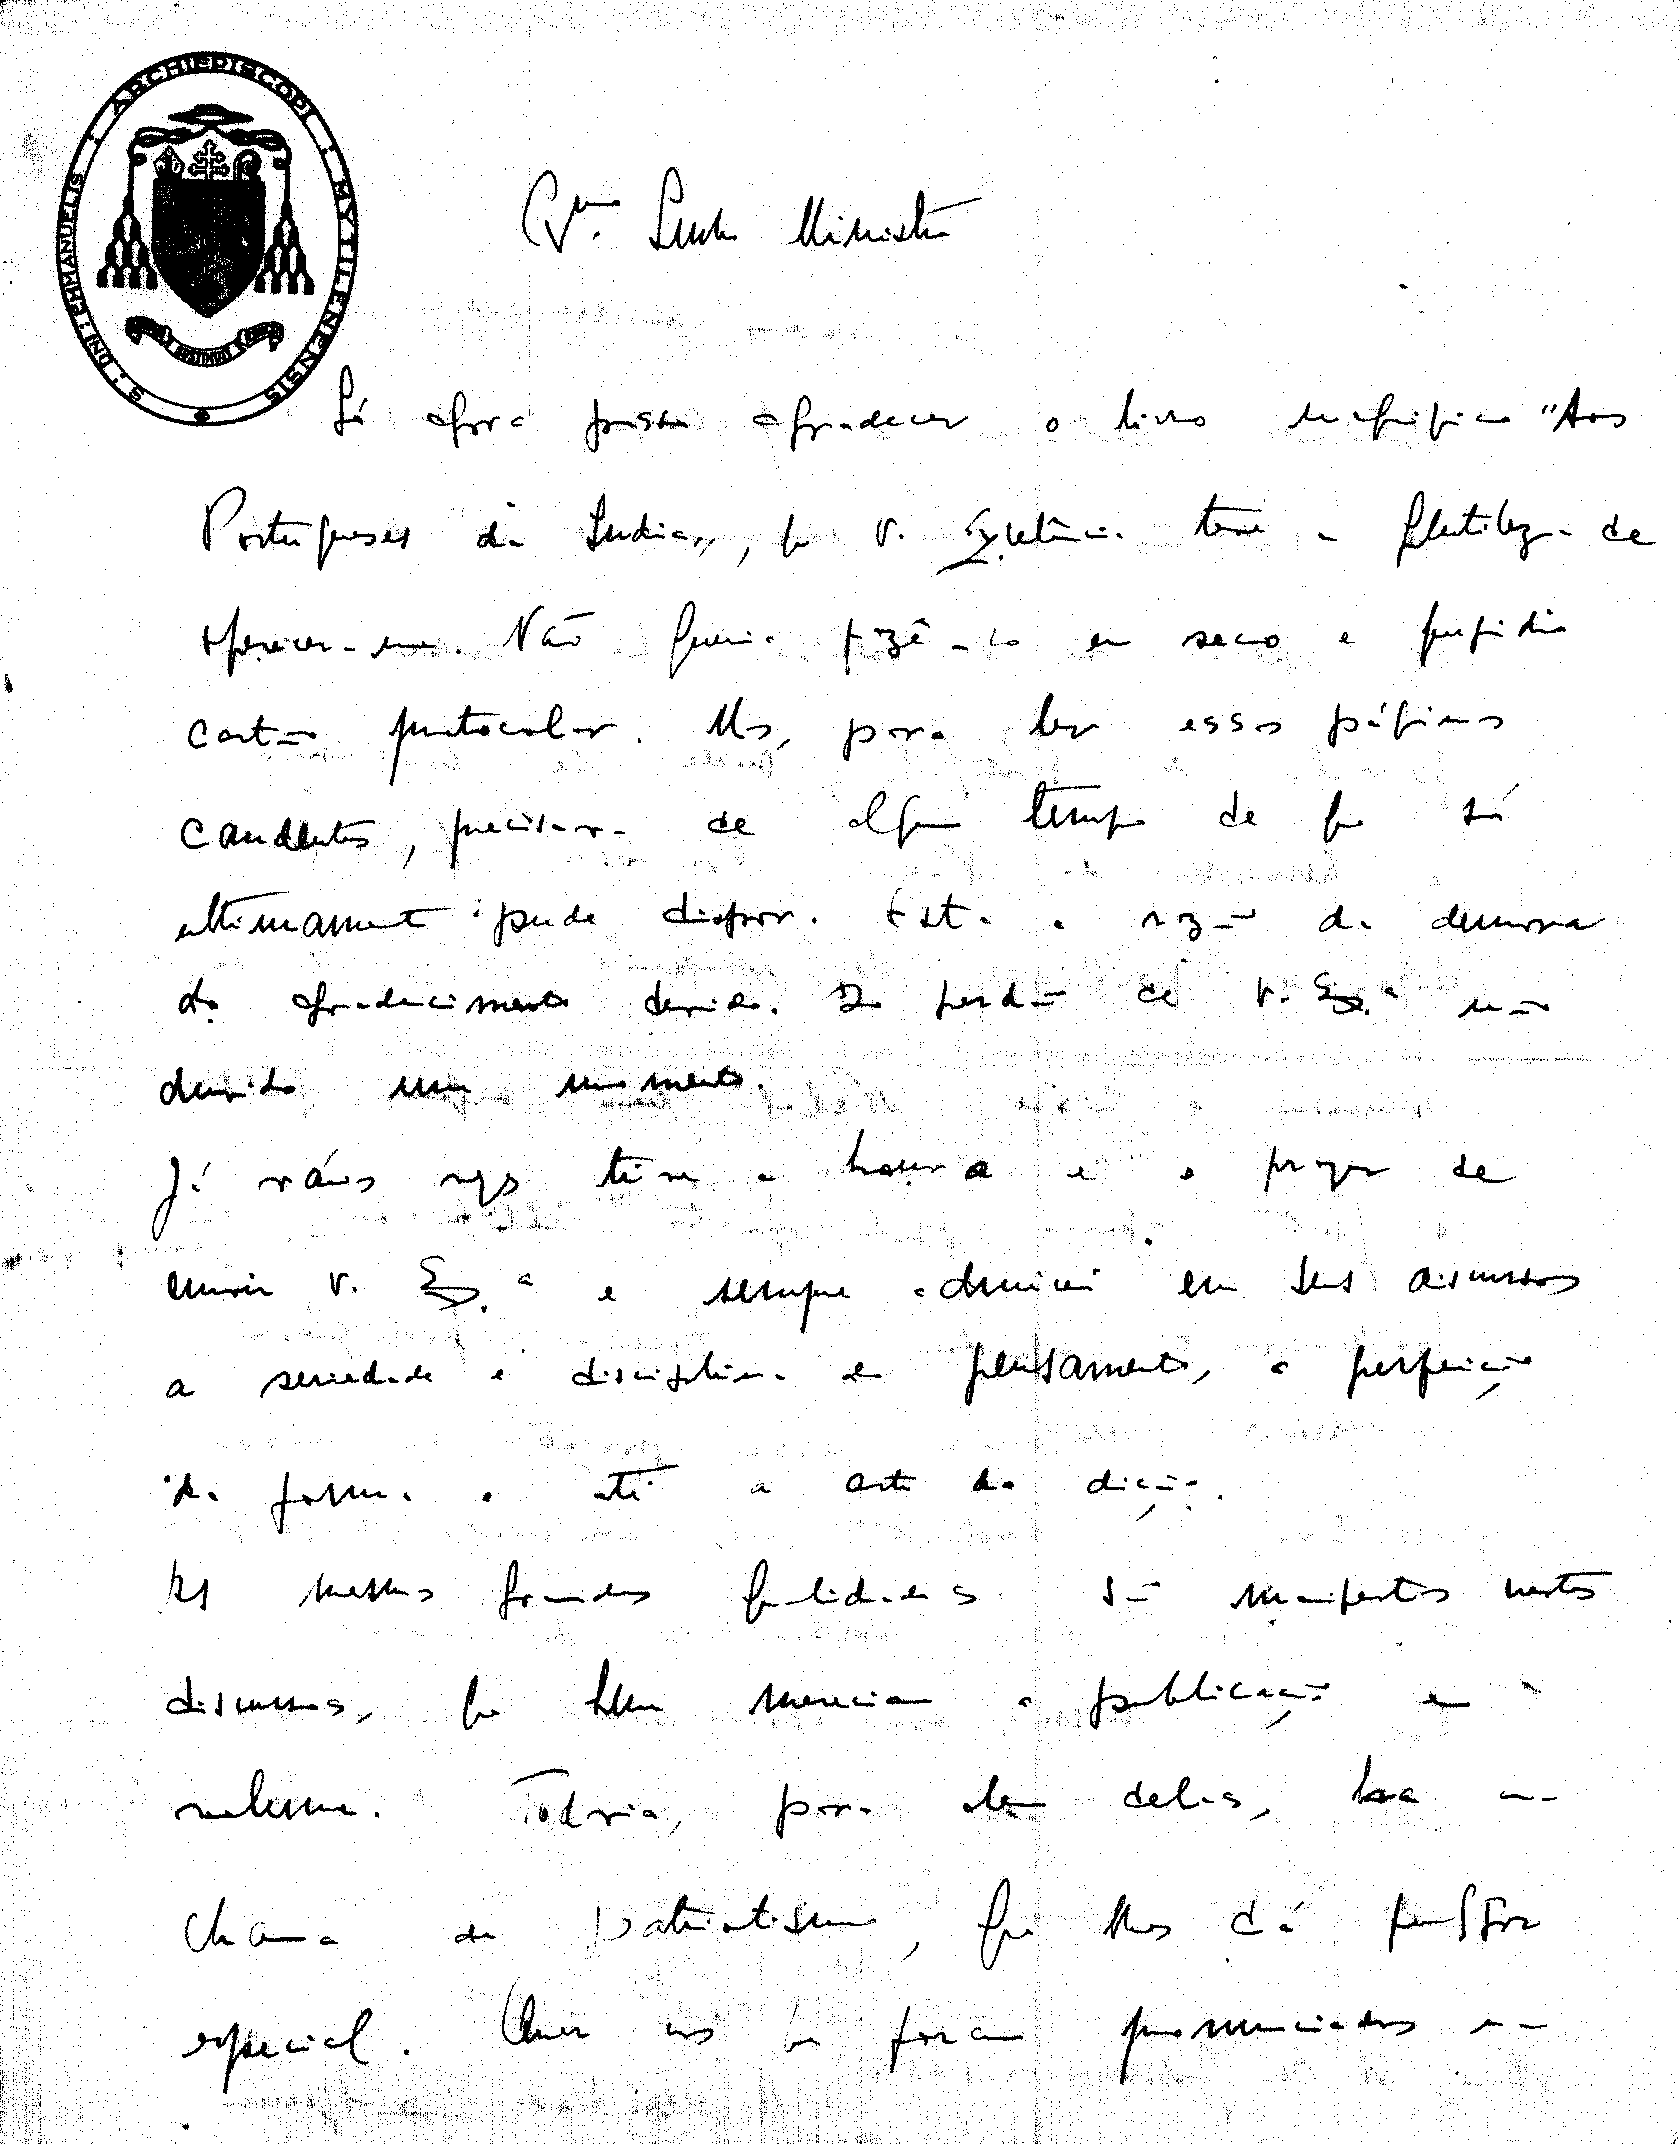 S. DNI. EMMANUELIS I ARCHIEPISCOPI I MYTILENENSIS
Senhor Ministro
Só agora posso agradecer o livro magnífico "Aos
Portugueses da Índia", que V. Excelência teve a gentileza de
oferecer-me. Não queria fazê-lo em seco e
cartão protocolar. Mas, para ler essas páginas
candentes, precisava de algum tempo de que só
ultimamente pude dispor. Esta a razão da demora
do agradecimento devido. Do perdão de V. Ex.ª não
duvido um momento.
Já várias vezes tive a honra e o prazer de
ouvir V. Ex.ª e sempre admirei em seus discursos
a seriedade e disciplina de pensamento, a perfeição
da forma e até a arte da dicção.
As mesmas grandes qualidades são manifestas nestes
discursos, que bem mereciam a publicação em
volume. Todavia, para além delas, há uma
chama de patriotismo, que lhes dá
especial. Quer os que foram pronunciados na